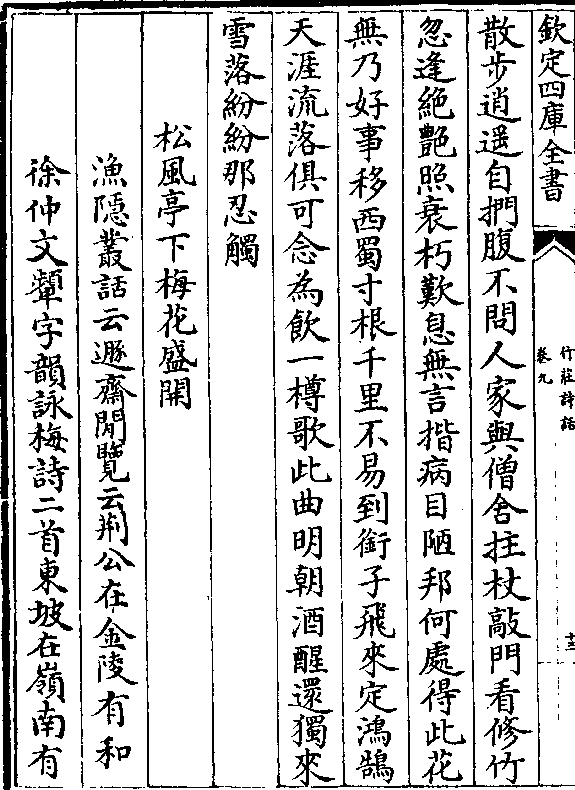 欽定四庫全書
竹莊詩話
卷九
十三
散步逍遥自捫腹不問人家與僧舍拄杖敲門看修竹
忽逢絶艷照衰朽歎息無言揩病目陋邦何處得此花
無乃好事移西蜀寸根千里不易到銜子飛來定鴻鵠
天涯流落俱可念為飲一樽歌此曲明朝酒醒還獨來
雪落紛紛那忍觸
松風亭下梅花盛開
漁隱叢話云遯齋閒覽云荆公在金陵有和
徐仲文顰字韻詠梅詩二首東坡在嶺南有